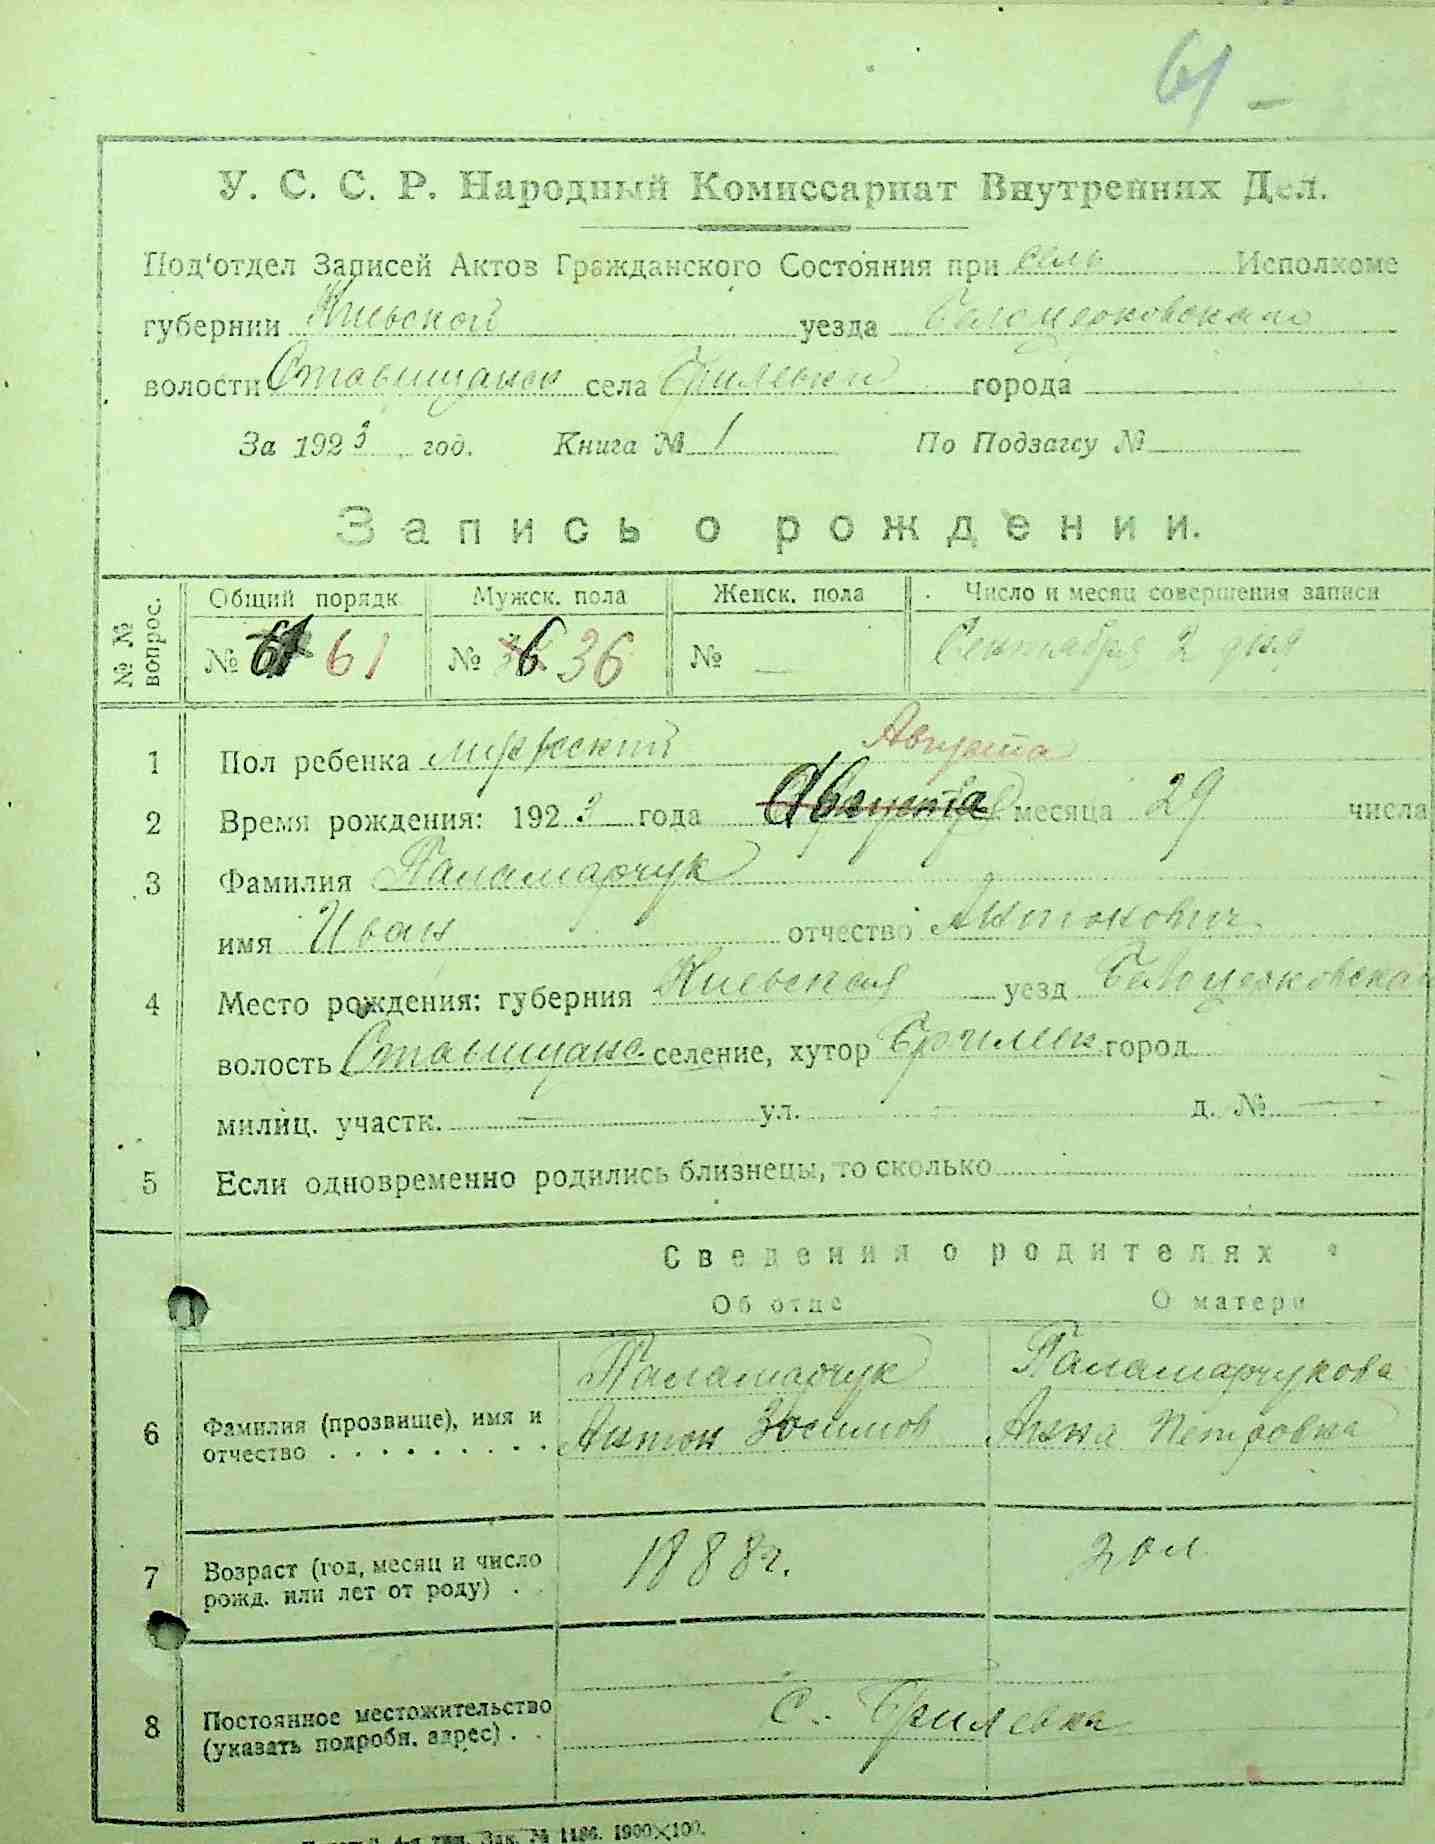 61 –
У. С. С. Р. Народный Комиссариат Внутренних Дел.
Под'отдел Записей Актов Гражданского Состояния при сель Исполкоме
губернии Киевской уезда Белоцерковскаго
волости Ставищанск села Брилевки города
За 1923 год. Книга № 1 По Подзагсу №
Запись о рождении.
№ № вопрос.
Общий порядк Мужск. пола Женск. пола Число и месяц совершения записи
№ 61 № 36 № — Сентября 2 дня
1 Пол ребенка мужеский
Августа
2 Время рождения: 1923 года Августа месяца 29 числа
3 Фамилия Паламарчук
имя Иван отчество Антонович
4 Место рождения: губерния Киевская уезд Белоцерковская
волость Ставищанс. селение, хутор Брилевк город
милиц. участк. — ул. — д. № —
5 Если одновременно родились близнецы, то сколько
Сведения о родителях
Об отце О матери
Паламарчук Паламарчукова
6 Фамилия (прозвище), имя и отчество Антон Зосимов Анна Петровна
7 Возраст (год, месяц и число рожд. или лет от роду) 1888 г. 30 л
8 Постоянное местожительство (указать подробн. адрес) с. Брилевка
Зак. № 1186. 1900×100.